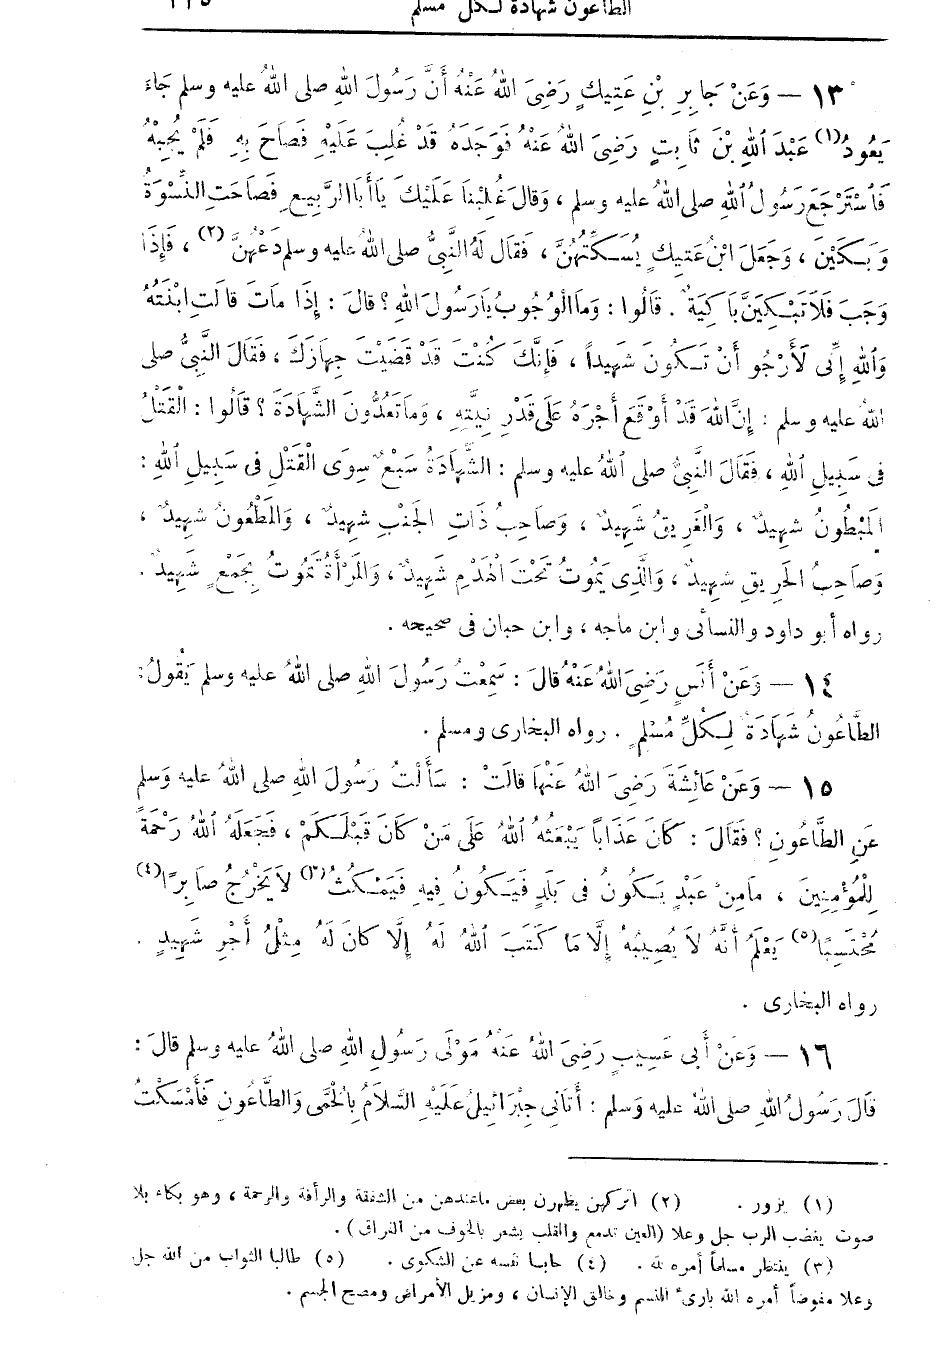 الطاعون شهادة لكل مسلم ٣٣٥
١٣ — وَعَنْ جَابِرِ بْنِ عَتِيكٍ رَضِىَ اللهُ عَنْهُ أَنَّ رَسُولَ اللهِ صلى اللهُ عليه وسلم جَاءَ
يَعُودُ(١) عَبْدَ اللهِ بْنَ ثَابِتٍ رَضِىَ اللهُ عَنْهُ فَوَجَدَهُ قَدْ غُلِبَ عَلَيْهِ فَصَاحَ بِهِ فَلَمْ يُجِبْهُ
فَاسْتَرْجَعَ رَسُولُ اللهِ صلى اللهُ عليه وسلم ، وَقَالَ غُلِبْنَا عَلَيْكَ يَا أَبَا الرَّبِيعِ فَصَاحَتِ النِّسْوَةُ
وَبَكَيْنَ ، وَجَعَلَ ابْنُ عَتِيكٍ يُسَكِّتُهُنَّ ، فَقَالَ لَهُ النَّبِىُّ صلى اللهُ عليه وسلم دَعْهُنَّ(٢) ، فَإِذَا
وَجَبَ فَلَا تَبْكِيَنَّ بَاكِيَةٌ . قَالُوا : وَمَا الْوُجُوبُ يَا رَسُولَ اللهِ ؟ قَالَ : إِذَا مَاتَ قَالَتِ ابْنَتُهُ
وَاللهِ إِنِّى لَأَرْجُو أَنْ تَكُونَ شَهِيداً ، فَإِنَّكَ كُنْتَ قَدْ قَضَيْتَ جِهَازَكَ ، فَقَالَ النَّبِىُّ صلى
اللهُ عليه وسلم : إِنَّ اللهَ قَدْ أَوْقَعَ أَجْرَهُ عَلَى قَدْرِ نِيَّتِهِ ، وَمَا تَعُدُّونَ الشَّهَادَةَ ؟ قَالُوا : الْقَتْلُ
فى سَبِيلِ اللهِ ، فَقَالَ النَّبِىُّ صلى اللهُ عليه وسلم : الشَّهَادَةُ سَبْعٌ سِوَى الْقَتْلِ فى سَبِيلِ اللهِ :
الْمَبْطُونُ شَهِيدٌ ، وَالْغَرِيقُ شَهِيدٌ ، وَصَاحِبُ ذَاتِ الْجَنْبِ شَهِيدٌ ، وَالْمَطْعُونُ شَهِيدٌ ،
وَصَاحِبُ الْحَرِيقِ شَهِيدٌ ، وَالَّذِى يَمُوتُ تَحْتَ الْهَدْمِ شَهِيدٌ ، وَالْمَرْأَةُ تَمُوتُ بِجَمْعٍ شَهِيدٌ .
رواه أبو داود والنسائى وابن ماجه ، وابن حبان فى صحيحه .
١٤ — وَعَنْ أَنَسٍ رَضِىَ اللهُ عَنْهُ قَالَ : سَمِعْتُ رَسُولَ اللهِ صلى اللهُ عليه وسلم يَقُولُ :
الطَّاعُونُ شَهَادَةٌ لِكُلِّ مُسْلِمٍ . رواه البخارى ومسلم .
١٥ — وَعَنْ عَائِشَةَ رَضِىَ اللهُ عَنْهَا قَالَتْ : سَأَلْتُ رَسُولَ اللهِ صلى اللهُ عليه وَسلم
عَنِ الطَّاعُونِ ؟ فَقَالَ : كَانَ عَذَاباً يَبْعَثُهُ اللهُ عَلَى مَنْ كَانَ قَبْلَكُمْ ، فَجَعَلَهُ اللهُ رَحْمَةً
لِلْمُؤْمِنِينَ ، مَا مِنْ عَبْدٍ يَكُونُ فى بَلَدٍ فَيَكُونُ فِيهِ فَيَمْكُثُ(٣) لَا يَخْرُجُ صَابِرًا(٤)
مُحْتَسِبًا(٥) يَعْلَمُ أَنَّهُ لَا يُصِيبُهُ إِلَّا مَا كَتَبَ اللهُ لَهُ إِلَّا كَانَ لَهُ مِثْلُ أَجْرِ شَهِيدٍ .
رواه البخارى .
١٦ — وَعَنْ أَبِى عَسِيبٍ رَضِىَ اللهُ عَنْهُ مَوْلَى رَسُولِ اللهِ صلى اللهُ عليه وسلم قَالَ :
قَالَ رَسُولُ اللهِ صلى اللهُ عليه وَسلم : أَتَانِى جِبْرَائِيلُ عَلَيْهِ السَّلَامُ بِالْحُمَّى وَالطَّاعُونِ فَأَمْسَكْتُ
(١) يزور . (٢) اتركهن يظهرن بعض ماعندهن من الشفقة والرأفة والرحمة ، وهو بكاء بلا
صوت يغضب الرب جل وعلا (العين تدمع والقلب يشعر بالخوف من الفراق) .
(٣) ينتظر مسلماً أمره لله . (٤) حابسا نفسه عن الشكوى . (٥) طالبا الثواب من الله جل
وعلا مفوضاً أمره الله بارىء النسم وخالق الإنسان ، ومزيل الأمراض ومصح الجسم .